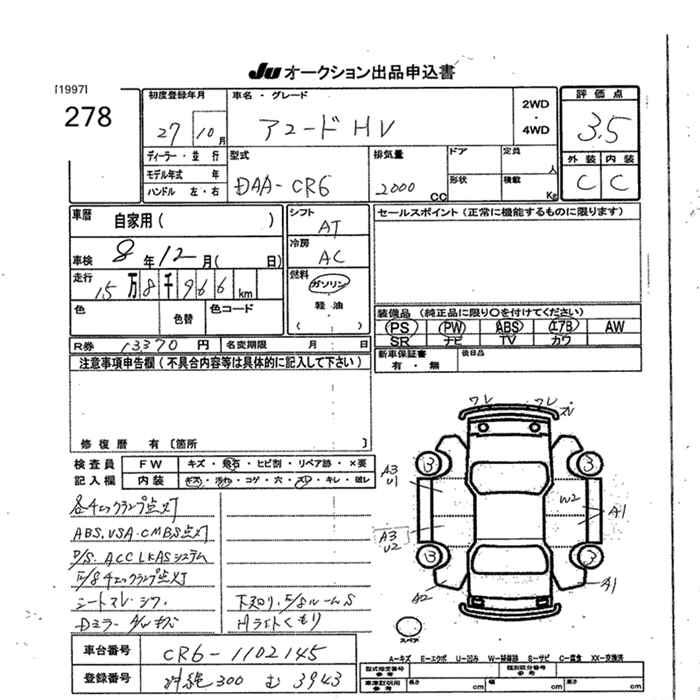 JU オークション出品申込書
[1997]
278
初度登録年月
27 10月
車名・グレード
アコードHV
2WD
・
4WD
評価点
3.5
外装 内装
C C
ディーラー・並行
モデル年式 年
ハンドル 左・右
型式
DAA-CR6
排気量
2000 CC
ドア
形状
定員 人
積載 Kg
車歴 自家用( )
車検 8年12月( 日)
走行 15万8千966km
色
色替
色コード
シフト
AT
冷房
AC
燃料
ガソリン
軽油
( )
セールスポイント(正常に機能するものに限ります)
装備品(純正品に限り○を付けてください)
PS PW ABS エアB AW
SR ナビ TV カワ
R券 13370円 名変期限 月 日
新車保証書
有・無
後日品
注意事項申告欄(不具合内容等は具体的に記入して下さい)
修復歴 有[箇所 ]
検査員
記入欄
FW キズ・飛石・ヒビ割・リペア跡・×要
内装 キズ・汚れ・コゲ・穴・スレ・キレ・破レ
各チェックランプ点灯
ABS.VSA.CMBS点灯
P/S.ACC LKASシステム
E/Bチェックランプ点灯
シートスレ.シワ
Dミラー
下廻り.E/BルームS
Hライトくもり
ワレ ワレ
ズレ
3 3
A3
U1
W2
A1
A3
U2
3 3
A2
A1
スペア
A-キズ E-エクボ U-凹み W-補修跡 S-サビ C-腐食 XX-交換済
車台番号 CR6-1102145
登録番号 300 む 3943
型式指定番号
参考
類別区分番号
参考
車庫証明用
参考
長さ cm
幅 cm
高さ cm